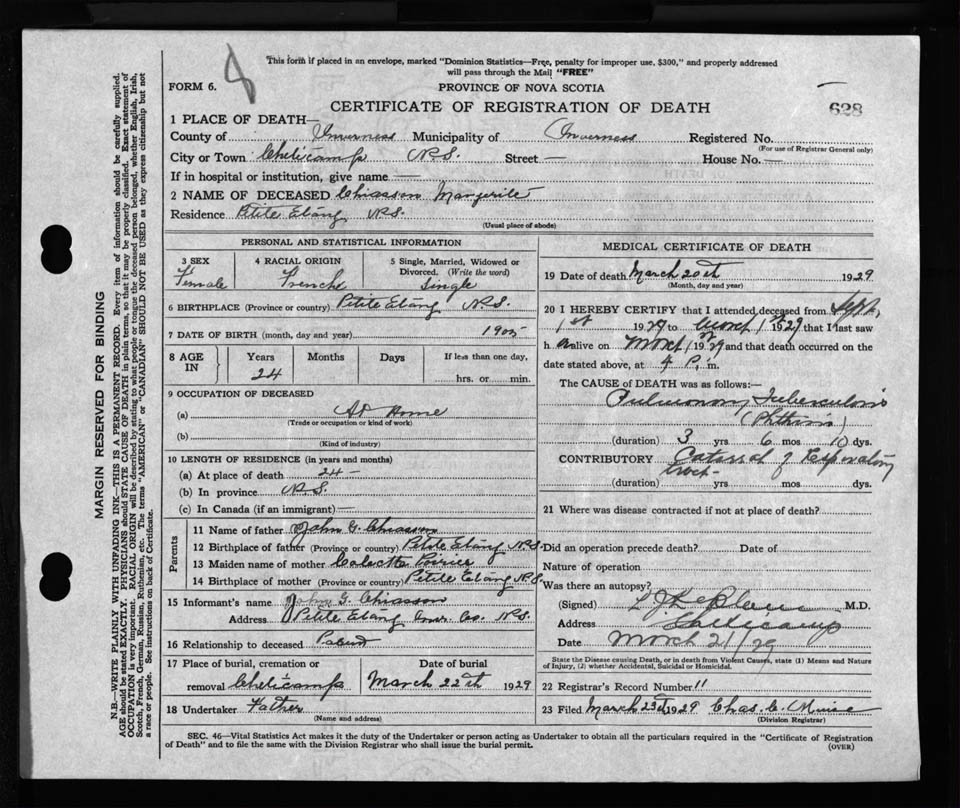 8
This form if placed in an envelope, marked "Dominion Statistics—Free, penalty for improper use, $300," and properly addressed
will pass through the Mail "FREE"
FORM 6.
PROVINCE OF NOVA SCOTIA
CERTIFICATE OF REGISTRATION OF DEATH
628
1 PLACE OF DEATH—
County of Inverness Municipality of Inverness Registered No.
(For use of Registrar General only)
City or Town Cheticamp N.S. Street — House No. —
If in hospital or institution, give name —
2 NAME OF DECEASED Chiasson Margerite
Residence Petite Etang N.S.
(Usual place of abode)
PERSONAL AND STATISTICAL INFORMATION
3 SEX
Female
4 RACIAL ORIGIN
French
5 Single, Married, Widowed or
Divorced. (Write the word)
Single
6 BIRTHPLACE (Province or country) Petite Etang N.S.
7 DATE OF BIRTH (month, day and year) 1905
8 AGE IN
Years Months Days If less than one day,
24 hrs. or min.
9 OCCUPATION OF DECEASED
(a) At Home
(Trade or occupation or kind of work)
(b)
(Kind of industry)
10 LENGTH OF RESIDENCE (in years and months)
(a) At place of death 24 —
(b) In province N.S.
(c) In Canada (if an immigrant) —
Parents
11 Name of father John G. Chiasson
12 Birthplace of father (Province or country) Petite Etang N.S.
13 Maiden name of mother Poirier
14 Birthplace of mother (Province or country) Petite Etang N.S.
15 Informant's name John G. Chiasson
Address Petite Etang Inver. Co. N.S.
16 Relationship to deceased
17 Place of burial, cremation or
removal Cheticamp
Date of burial
March 22th 1929
18 Undertaker Father
(Name and address)
MEDICAL CERTIFICATE OF DEATH
19 Date of death March 20th 1929
(Month, day and year)
20 I HEREBY CERTIFY that I attended deceased from Sept.
1st 1929 to March 1st 1929 that I last saw
h er alive on March 1st 1929 and that death occurred on the
date stated above, at 4 P. m.
The CAUSE OF DEATH was as follows:—
Pulmonary Tuberculosis
(Phthisis)
(duration) 3 yrs 6 mos 10 dys.
CONTRIBUTORY Catarrah of Respiratory
tract
(duration) yrs mos dys.
21 Where was disease contracted if not at place of death?
Did an operation precede death? Date of
Nature of operation
Was there an autopsy?
(Signed) M.D.
Address
Date March 21/29
State the Disease causing Death, or in death from Violent Causes, state (1) Means and Nature
of Injury, (2) whether Accidental, Suicidal or Homicidal.
22 Registrar's Record Number 11
23 Filed March 23d 1929 Chas. C. Muise
(Division Registrar)
SEC. 46—Vital Statistics Act makes it the duty of the Undertaker or person acting as Undertaker to obtain all the particulars required in the "Certificate of Registration
of Death" and to file the same with the Division Registrar who shall issue the burial permit.
(OVER)
MARGIN RESERVED FOR BINDING
N.B.—WRITE PLAINLY WITH UNFADING INK—THIS IS A PERMANENT RECORD. Every item of information should be carefully supplied.
AGE should be stated EXACTLY. PHYSICIANS should STATE CAUSE OF DEATH in plain terms, so that it may be properly classified. Exact statement of
OCCUPATION is very important. RACIAL ORIGIN will be described by stating to what people or tongue the deceased person belonged, whether English, Irish,
Scotch, French, German, Russian, Ruthenian, etc. The terms "AMERICAN" or "CANADIAN" SHOULD NOT BE USED as they express citizenship but not
a race or people. See instructions on back of Certificate.